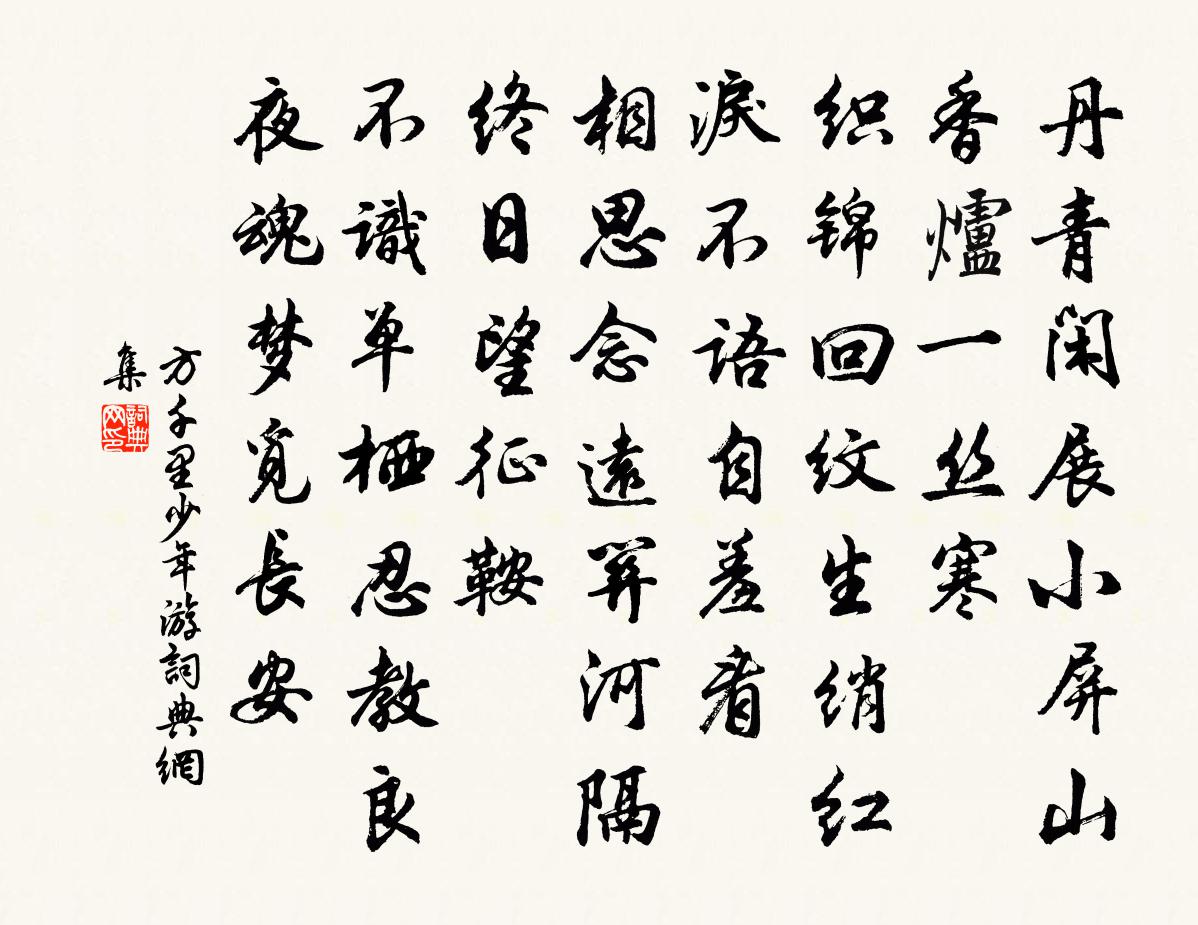 丹青闲展小屏山
香爐一丝寒
织锦回纹生绡红
淚不語自羞看
相思念遠関河隔
终日望征鞍
不識单栖忍教良
夜魂梦觅長安
方千里少年游詞典網
集
詞典网印